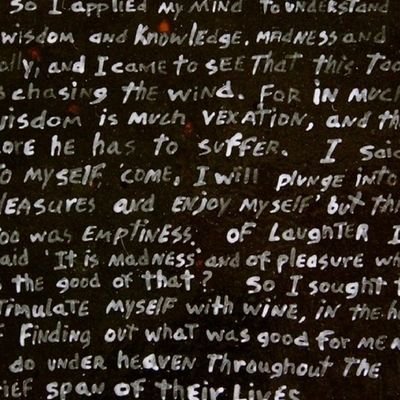 So I applied my mind to understand
wisdom and knowledge, madness and
olly, and I came to see that this too
s chasing the wind. For in much
wisdom is much vexation, and th
ore he has to suffer. I said
o myself, 'come, I will plunge into
leasures and enjoy myself' but thi
oo was emptiness. Of laughter I
aid 'It is madness' and of pleasure wh
s the good of that? So I sought t
timulate myself with wine, in the h
f finding out what was good for men
do under heaven throughout the
rief span of their lives